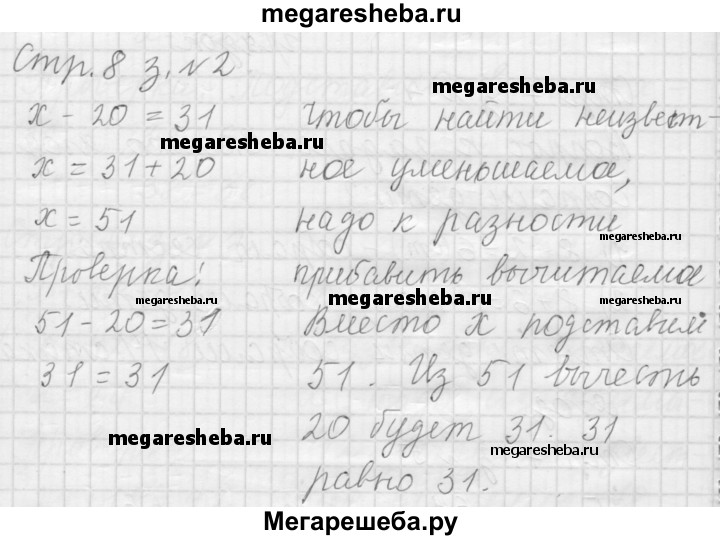 megaresheba.ru
Стр. 8 з. №2
megaresheba.ru
x - 20 = 31 Чтобы найти неизвест-
megaresheba.ru
x = 31 + 20 ное уменьшаемое,
x = 51 надо к разности
megaresheba.ru
Проверка: прибавить вычитаемое
megaresheba.ru megaresheba.ru megaresheba.ru
51 - 20 = 31 Вместо x подставим
31 = 31 51. Из 51 вычесть
megaresheba.ru
20 будет 31. 31
megaresheba.ru
равно 31.
Мегарешеба.ру